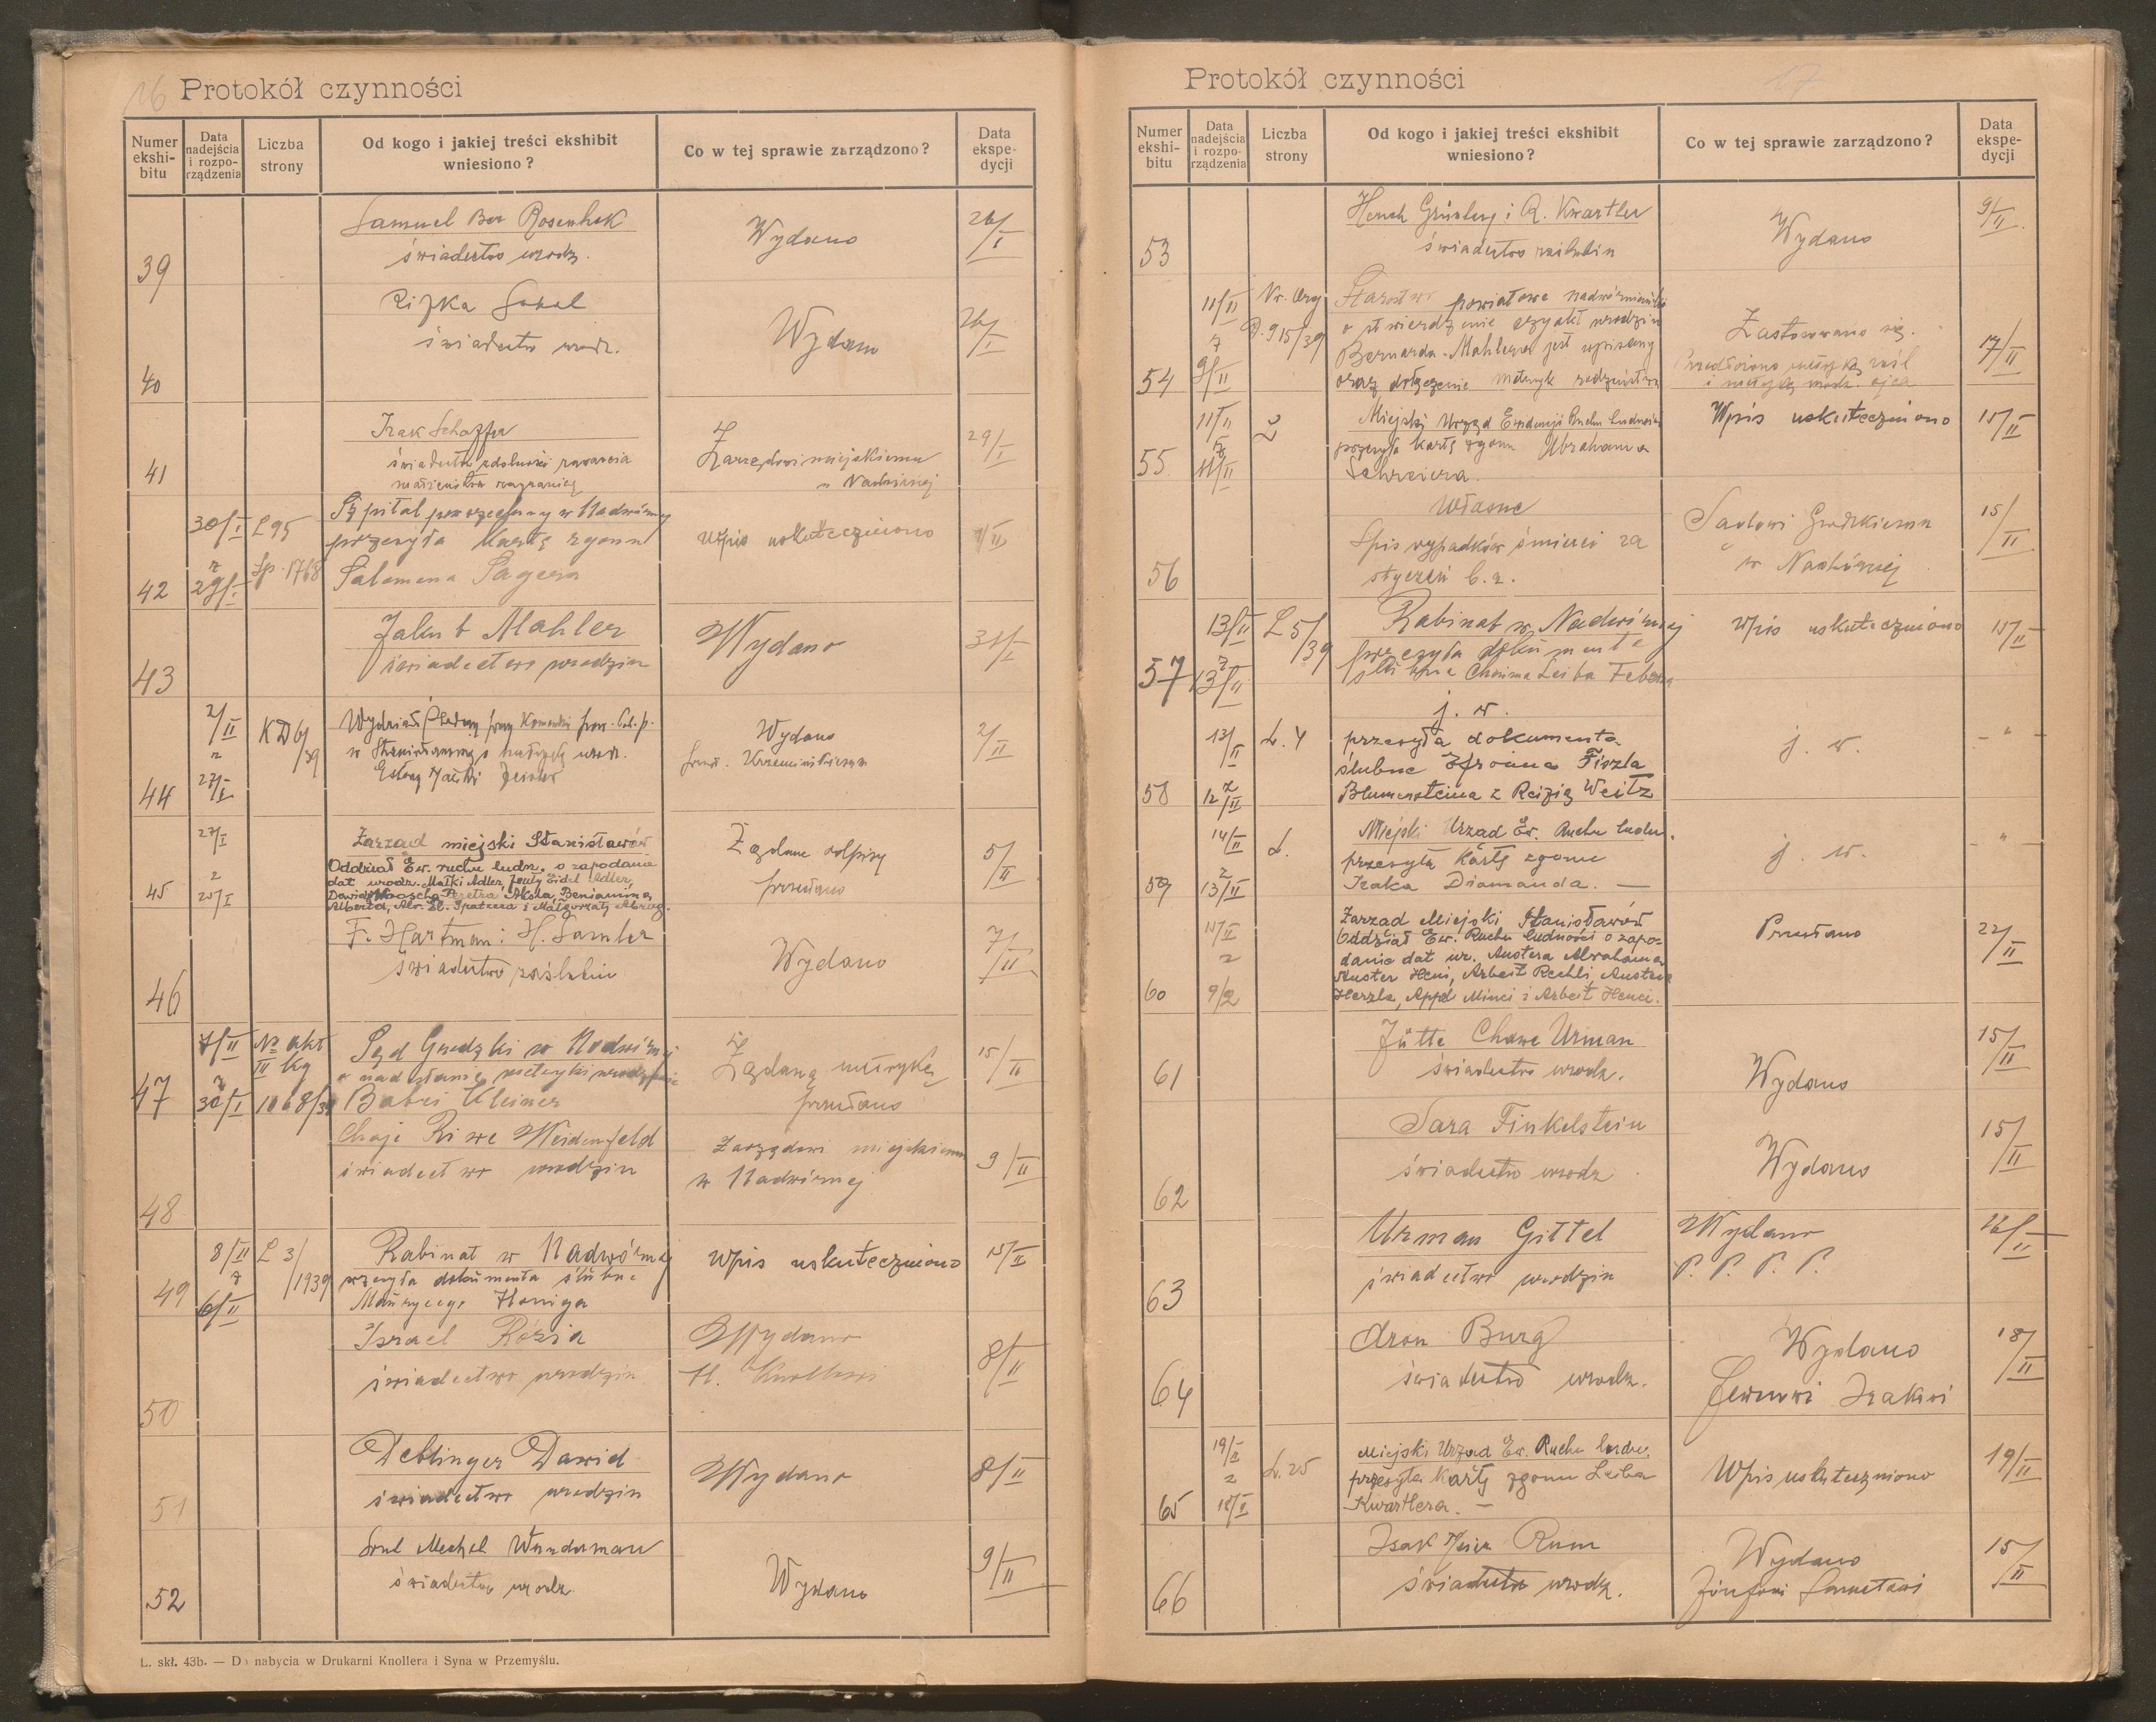 16 Protokół czynności
Numer ekshi- bitu
Data nadejścia i rozpo- rządzenia
Liczba strony
Od kogo i jakiej treści ekshibit wniesiono?
Co w tej sprawie zarządzono?
Data ekspe- dycji
Samuel Ber Rosenhek Wydano 26/I
39 świadectwo urodz.
Rifka Sobol Wydano 26/I
40 świadectwo urodz.
Izak Schaffer 29/I
41 świadectwo zdolności zawarcia Zarządowi miejskiemu
małżeństwa zagranicą w Nadwórnej
30/I L 95 Szpital powszechny w Nadwórnej
przesyła kartę zgonu Wpis uskuteczniono 1/II
42 z 29/I Sp. 1768 Salamona Sagera
Jakub Mahler Wydano 31/I
43 świadectwo urodzin
2/II KD 6/39 Wydział Śledczy przy Komendzie pow. Pol. P. Wydano 2/II
z w Stanisławowie o metrykę urodz.
44 27/I Estery
27/I Zarząd miejski Stanisławów Żądane odpisy 5/II
Oddział Ew. ruchu ludn. o zapodanie przesłano
z dat urodz. Małki Adler, Jenty Eidel Adler,
45 25/I Dawida Petra Benjamina
Alberta, Abr. El. Spatzera i Małgorzaty
F. Hartman i H. Samler Wydano 7/II
46 świadectwo zaślubin
7/II Nr akt Sąd Grodzki w Nadwórnej Żądaną metrykę 15/II
II Kg o nadesłanie metryki urodzenia
47 z 30/I 1068/38 Babci Kleiner przesłano
Chaje Riwe Weidenfeld Zarządowi miejskiemu 9/II
48 świadectwo urodzin w Nadwórnej
8/II L 3/1939 Rabinat w Nadwórnej Wpis uskuteczniono 15/II
z przesyła dokumenta ślubne
49 6/II Maurycego Honiga
Israel Rózia Wydano 8/II
50 świadectwo urodzin
Deblinger Dawid Wydano 8/II
51 świadectwo urodzin
Srul Mechel Wunderman Wydano 9/II
52 świadectwo urodz.
L. skł. 43b. — Do nabycia w Drukarni Knollera i Syna w Przemyślu.
Protokół czynności 17
Numer ekshi- bitu
Data nadejścia i rozpo- rządzenia
Liczba strony
Od kogo i jakiej treści ekshibit wniesiono?
Co w tej sprawie zarządzono?
Data ekspe- dycji
Hersch Grünberg i R. Kwartler Wydano 9/II
53 świadectwo zaślubin
11/II Nr. Org Starostwo powiatowe nadwórniańskie
9 15/39 o stwierdzenie czy akt urodzin Zastosowano się.
z Bernarda Mahlera jest wpisany Przedłożono metrykę zaśl 17/II
54 9/II oraz dołączenie metryk rodzeństwa i metrykę urodz. ojca
11/II L Miejski Urząd Ewidencji Ruchu Ludności Wpis uskuteczniono 15/II
z przesyła kartę zgonu Abrahama
55 11/II Schreiera.
Własne Sądowi Grodzkiemu 15/II
Spis wypadków śmierci za w Nadwórnej
56 styczeń b.r.
13/II L 5/39 Rabinat w Nadwórnej Wpis uskuteczniono 15/II
z przesyła dokumenta
57 13/II ślubne Chaima Leiba
j. w.
13/II L. 4 przesyła dokumenta j. w. - " -
ślubne Efroima Fiszla
58 z 12/II Blumensteina z Reizią Weitz
14/II L. Miejski Urząd Ew. Ruchu Ludn. - " -
z przesyła kartę zgonu j. w.
59 13/II Izaka Diamanda. —
15/II Zarząd Miejski Stanisławów Przesłano 22/II
Oddział Ew. Ruchu Ludności o zapo-
z danie dat ur. Austera Abrahama
Auster Heni, Arbeit Rechli, Austera
60 9/2 Herzla, Appel Minci i Arbeit Henci.
Jütte Chawe Urman Wydano 15/II
61 świadectwo urodz.
Sara Finkelstein Wydano 15/II
62 świadectwo urodz
Urman Gittel Wydano 16/II
63 świadectwo urodzin P. P. P. P.
Aron Burg Wydano 18/II
64 świadectwo urodz. Izakowi
19/II L. 25 Miejski Urząd Ew. Ruchu Ludn. Wpis uskuteczniono 19/II
z przesyła kartę zgonu Leiba
65 18/II Kwartlera. —
Isak Meier Rum Wydano 15/II
66 świadectwo urodz.